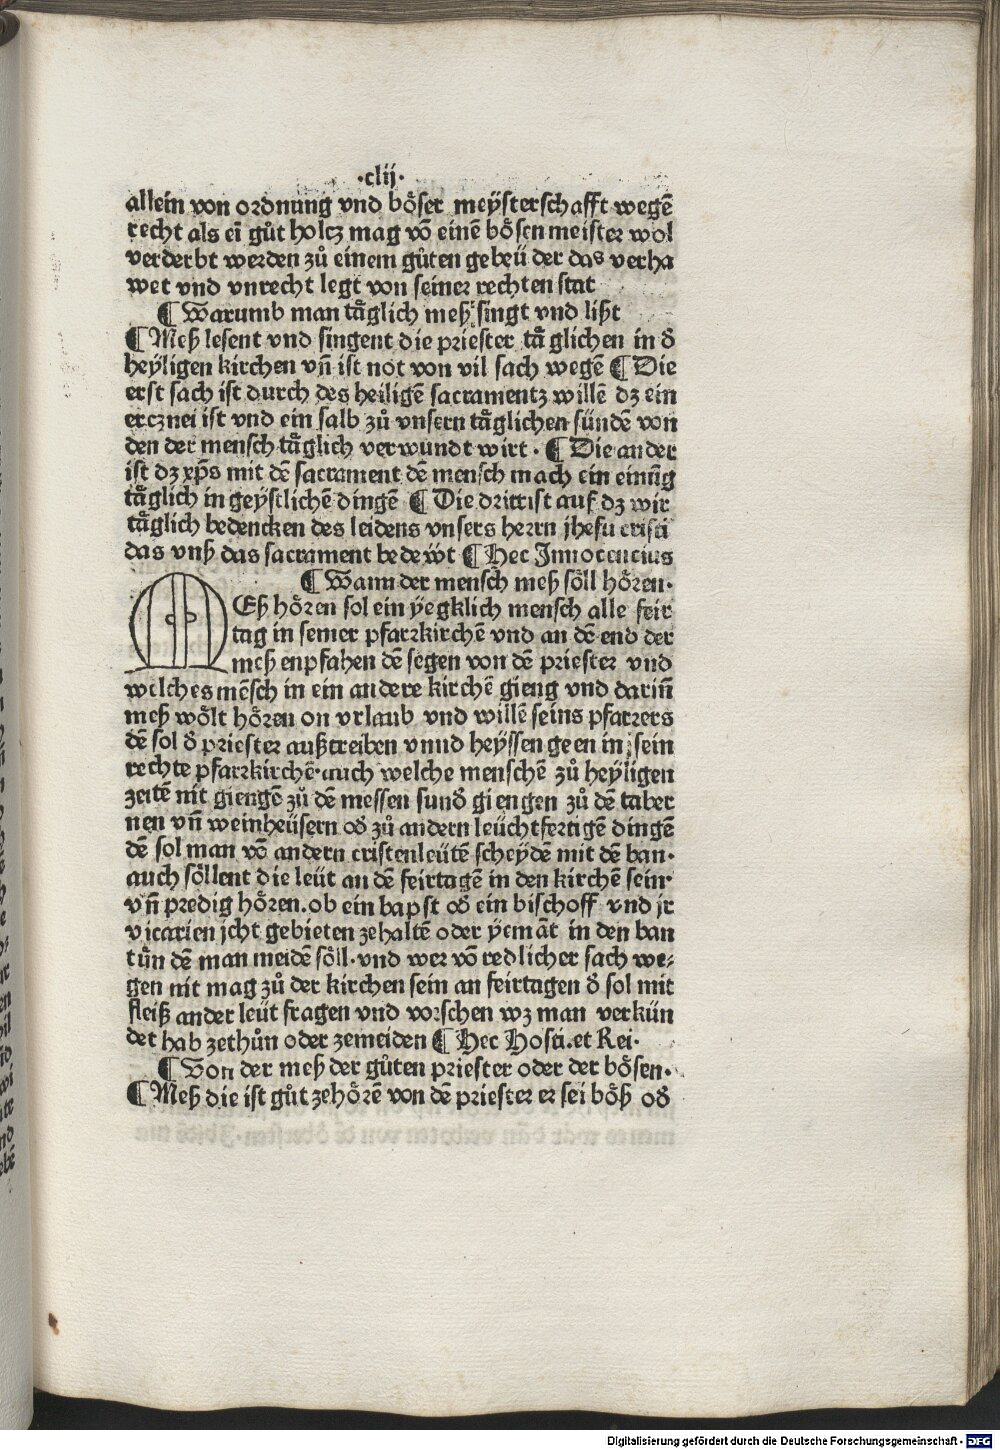 ·clij·
allein von ordnung vnd böser meÿsterschafft wegē
recht als eī gůt holcz mag vō einē bösen meister wol
verderbt werden zů einem gůten gebeü der das verha
wet vnd vnrecht legt von seiner rechten stat
¶ Warumb man täglich meß singt vnd lißt
¶ Meß lesent vnd singent die priester täglichen in d̄
heÿligen kirchen vn̄ ist not von vil sach wegē ¶ Die
erst sach ist durch des heiligē sacramentz willē dz ein
ercznei ist vnd ein salb zů vnsern täglichen sündē von
den der mensch täglich verwundt wirt · ¶ Die ander
ist dz xp̄s mit dē sacrament dē mensch mach ein einūg
täglich in geÿstlichē dingē ¶ Die drit ist auf dz wir
täglich bedencken des leidens vnsers herrn jhesu cristi
das vnß das sacrament bedeẅt ¶ Hec Innocencius
¶ Wann der mensch meß söll hören·
MEß hören sol ein ÿegklich mensch alle feir
tag in seiner pfarrkirchē vnd an dē end der
meß enpfahen dē segen von dē priester vnd
welches mēsch in ein andere kirchē gieng vnd darin̄
meß wölt hören on vrlaub vnd willē seins pfarrers
dē sol d̄ priester außtreiben vnnd heÿssen geen in sein
rechte pfarrkirchē·auch welche menschē zů heÿligen
zeitē nit giengē zů dē messen sund̄ giengen zů dē taber
nen vn̄ weinheüsern od̄ zů andern leüchtfertigē dingē
dē sol man vō andern cristenleütē scheÿdē mit dē ban·
auch söllent die leüt an dē feirtagē in den kirchē sein·
vn̄ predig hören.ob ein bapst od̄ ein bischoff vnd jr
vicarien jcht gebieten zehaltē oder ÿemāt in den ban
tůn dē man meidē söll·vnd wer vō redlicher sach we⸗
gen nit mag zů der kirchen sein an feirtagen d̄ sol mit
fleiß ander leüt fragen vnd vorschen wz man verkün
det hab zethůn oder zemeiden ¶ Hec Hosti.et Rei·
¶ Von der meß der gůten priester oder der bösen·
¶ Meß die ist gůt zehörē von dē priester er sei böß od̄
Digitalisierung gefördert durch die Deutsche Forschungsgemeinschaft - DFG